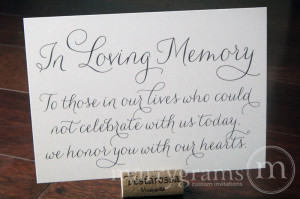 In Loving Memory
To those in our lives who could
not celebrate with us today,
we honor you with our hearts.
marrygrams
custom invitations
m